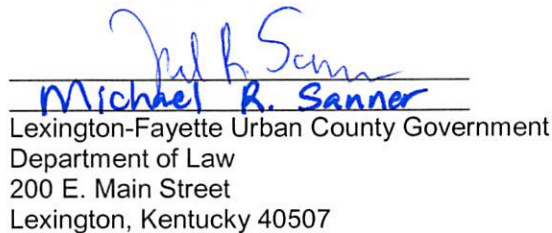 Michael R. Sanner
Lexington-Fayette Urban County Government
Department of Law
200 E. Main Street
Lexington, Kentucky 40507